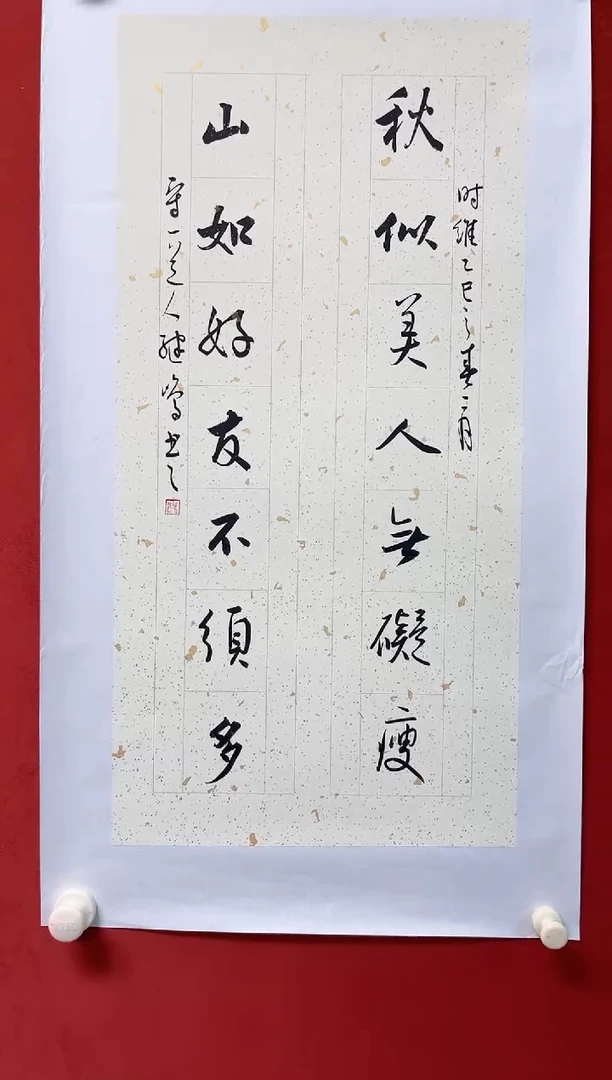 时维乙巳之春二月
秋似美人無礙瘦
山如好友不須多
守一道人继鸣书之